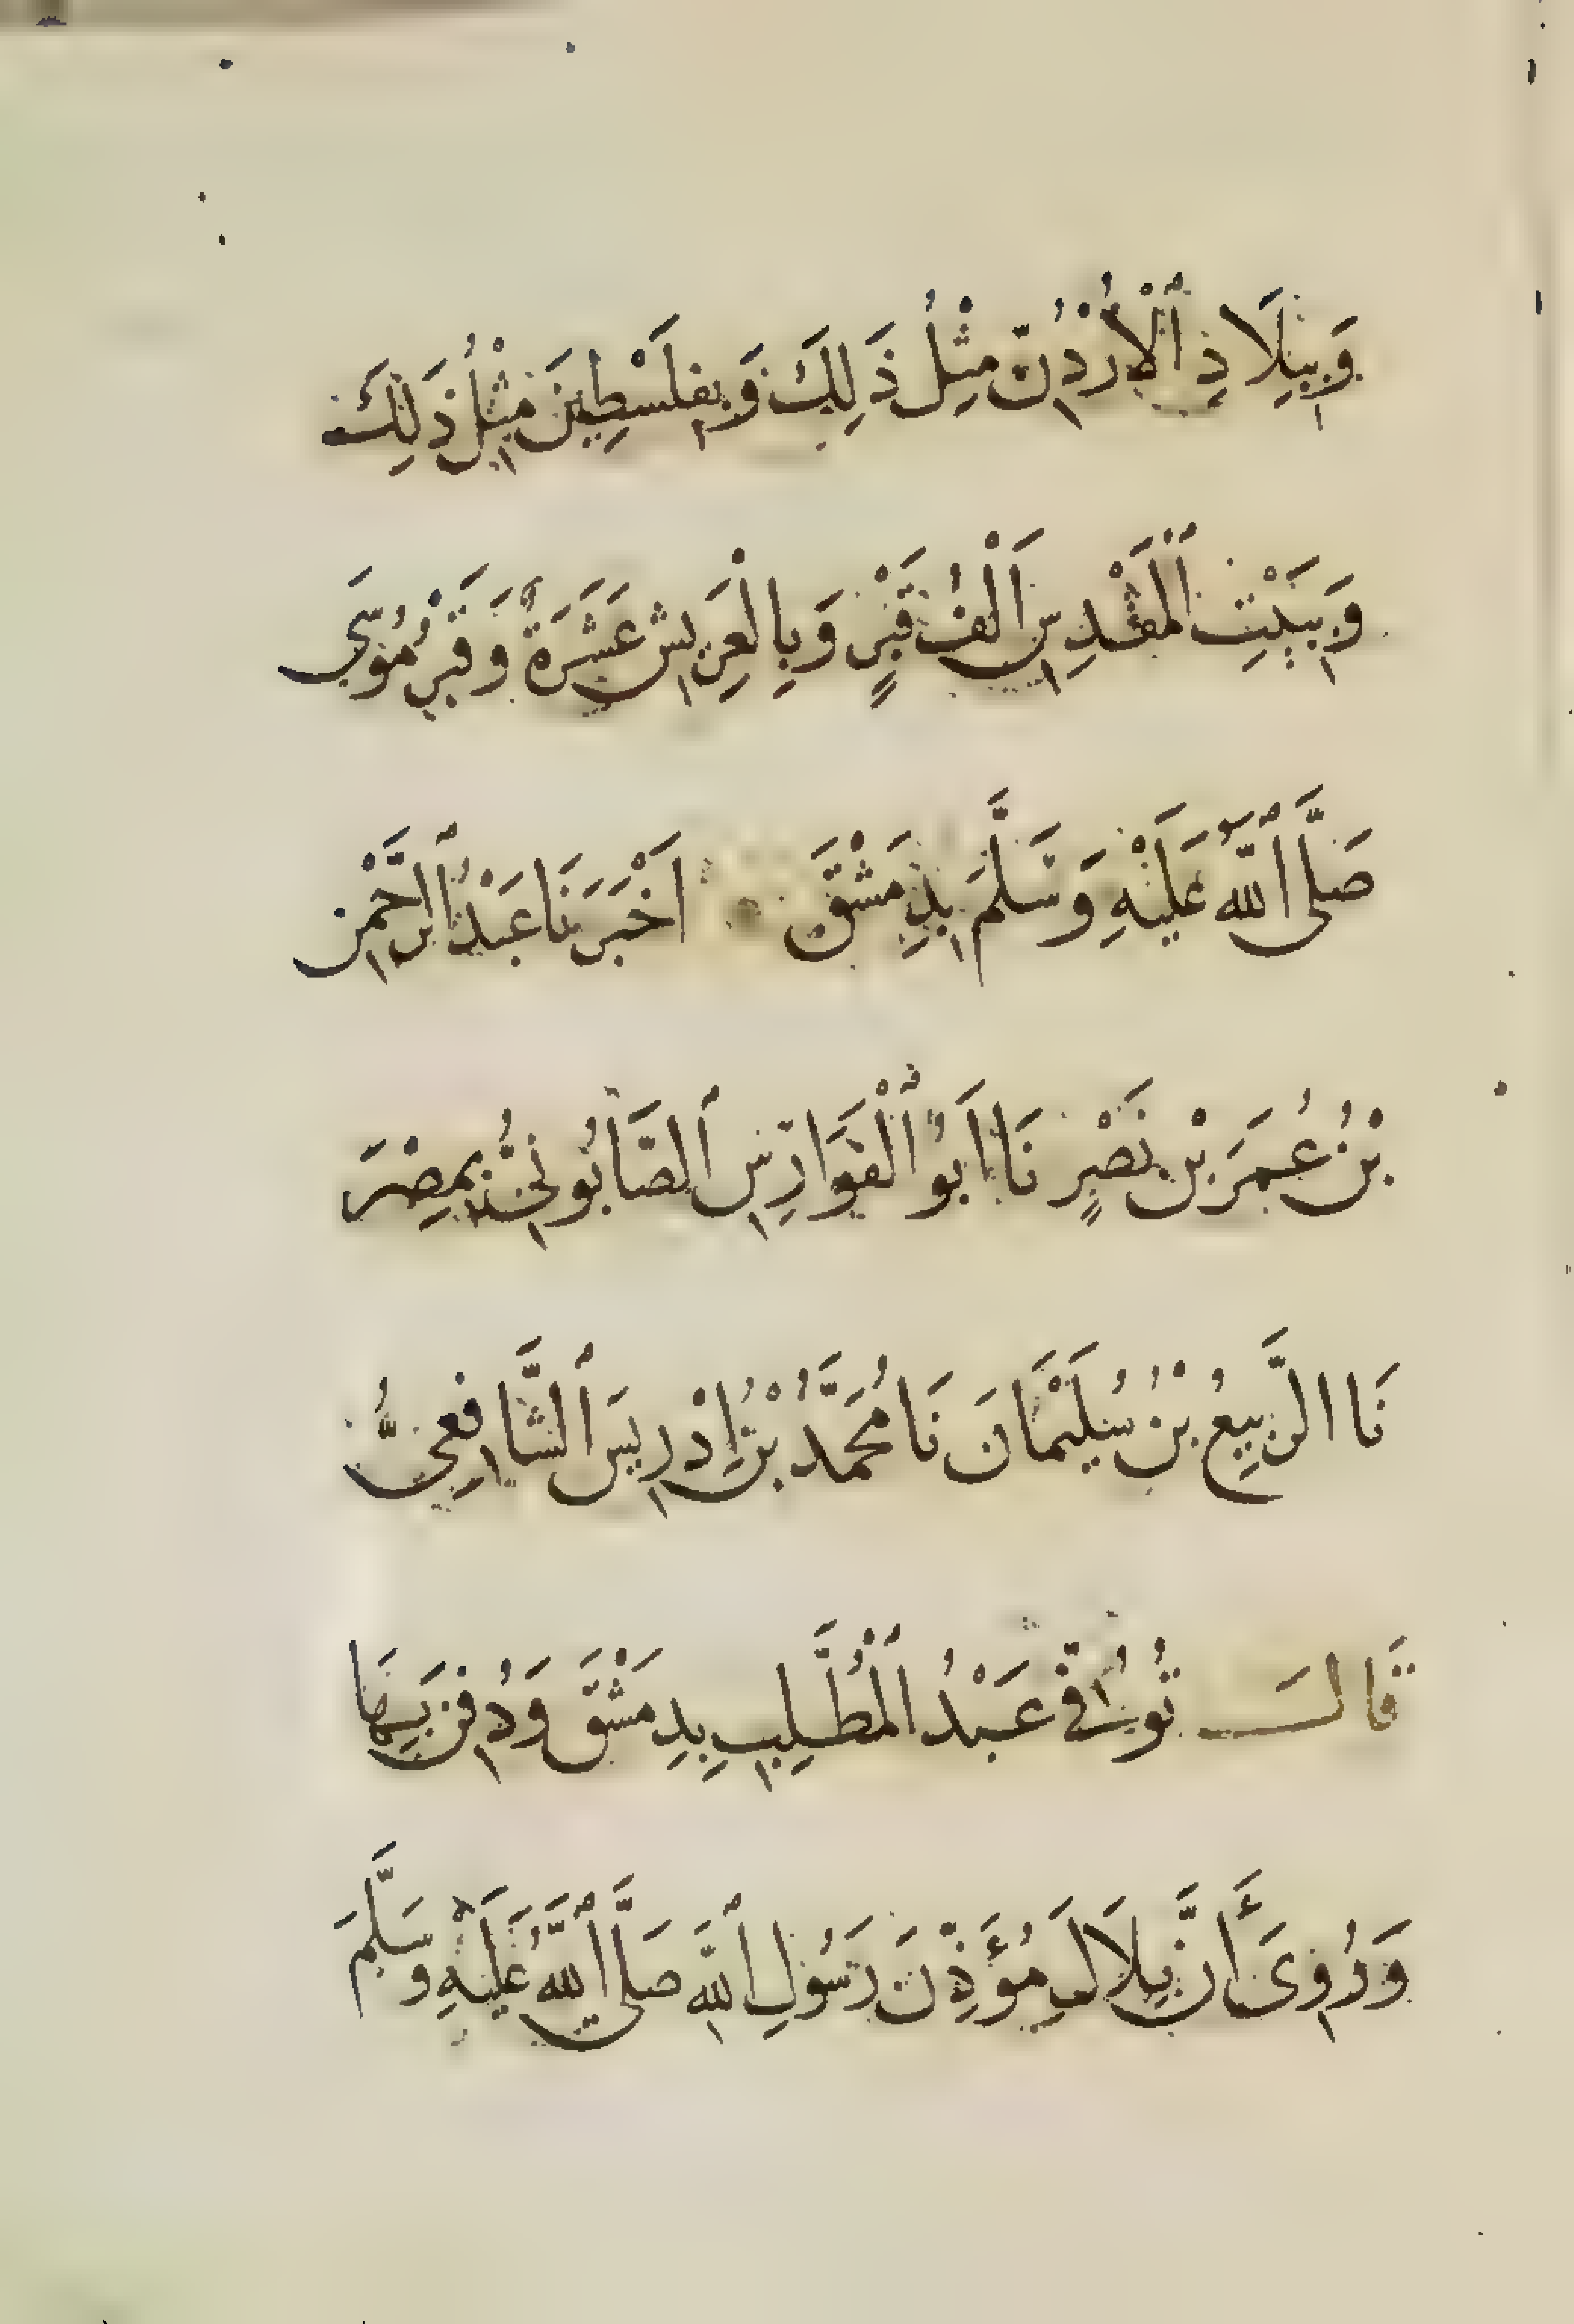 وَبِبِلَادِ ٱلْأُرْدُنّ مِثْلُ ذَلِكَ وَبِفَلَسْطِينَ مِثْلُ ذَلِكَ
وَبِبَيْتِ ٱلْمَقْدِسِ اَلْفُ قَبْرٍ وَبِالْعَرِيش عَشَرَةٌ وَقَبْرُ مُوسَى
صَلَّى ٱللَّهُ عَلَيْهِ وَسَلَّمَ بِدِمَشْقَ اَخْبَرَنَا عَبْدُ ٱلرَّحْمٰن
بْنُ عُمَرَ بْنِ نَصْرٍ نَا اَبُو ٱلْفَوَارِس ٱلصَّابُونِيُّ بِمِصْرَ
نَا الرَّبِيعُ بْنُ سُلَيْمَانَ نَا مُحَمَّدُ بْنُ إِدْرِيسَ ٱلشَّافِعِيُّ
قَالَ تُوُفِّيَ عَبْدُ ٱلْمُطَّلِبِ بِدِمَشْقَ وَدُفِنَ بِهَا
وَرُوِىَ أَنَّ بِلَالَ مُؤَذِّنَ رَسُولِ ٱللَّهِ صَلَّى ٱللَّهُ عَلَيْهِ وسَلَّمَ